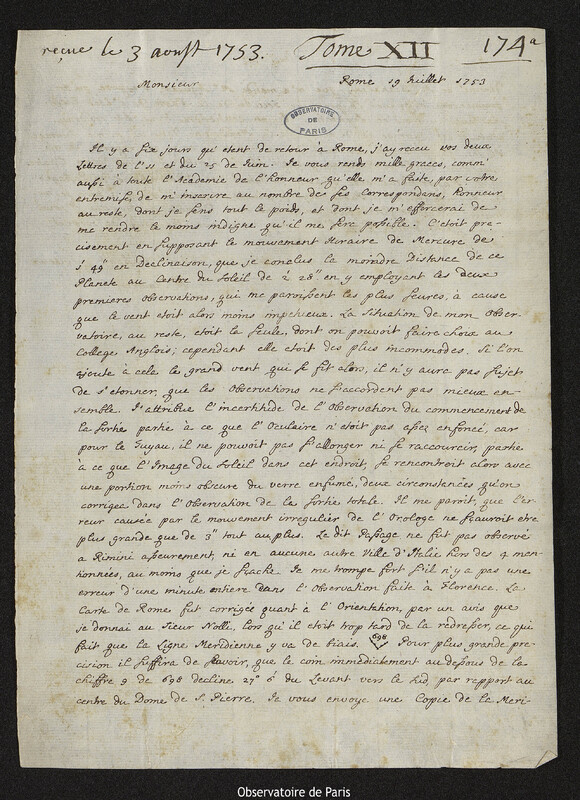 reçue le 3 aoust 1753. Tome XII 174a
Monsieur Rome 19 Juillet 1753
OBSERVATOIRE
DE
PARIS
Il y a six jours qu'etent de retour à Rome, j'ay recu vos deux
Lettres de l'11 et du 25 de Juin. Je vous rends mille graces, comm'
aussi à toute l'Academie de l'honneur qu'elle m'a faite, par votre
entremise, de m'inscrire au nombre des ses Correspondans, honneur
au reste, dont je sens tout le poids, et dont je m'efforcerai de
me rendre le moins indigne qu'il me sere possible. C'etoit pre-
cisement en supposant le mouvement Horaire de Mercure de
1' 49" en Declinaison, que je conclus la moindre Distance de ce
Planete au Centre du Soleil de 2' 28" en y employant les deux
premieres observations, qui me paroissent les plus seures, à cause
que le vent etoit alors moins impetueux. La situation de mon Obser-
vatoire, au reste, etoit la seule, dont on pouvoit faire choix au
College Anglois; cependant elle etoit des plus incommodes. Si l'on
ajoute à cele le grand vent qui se fit alors, il n'y aure pas sujet
de s'etonner, que les Observations ne s'accordent pas mieux en-
semble. J'attribue l'incertitide de l'Observation du commencement de
la sortie partie à ce que l'Oculaire n'etoit pas assez enfoncé, car
pour le Tuyau, il ne pouvoit pas s'allonger ni se raccourcir, partie
à ce que l'Image du Soleil dans cet endroit, se rencontroit alors avec
une portion moins obscure du verre enfumé, deux circonstances qu'on
corrigea dans l'Observation de la sortie totale. Il me paroit, que l'er-
reur causée par le mouvement irregulier de l'Orologe ne sauroit etre
plus grande que de 3" tout au plus. Le dit Passage ne fut pas observé
a Rimini asseurement, ni en aucune autre Ville d'Italie hors des 4 men-
tionnées, au moins que je sache. Je me trompe fort s'il n'y a pas une
erreur d'une minute entiere dans l'Observation faite à Florence. La
Carte de Rome fut corrigée quant à l'Orientation, par un avis que
je donnai au Sieur Nolli, lors qu'il etoit trop tard de la redresser, ce qui
fait que la Ligne Meridienne y va de biais. 698 Pour plus grande pre-
cision il suffira de savoir, que le coin immediatement au dessous de la
chiffre 9 de 698 decline 27° 6' du Levant vers le Sud, par rapport au
centre du Dome de S. Pierre. Je vous envoye une Copie de la Meri-
Observatoire de Paris